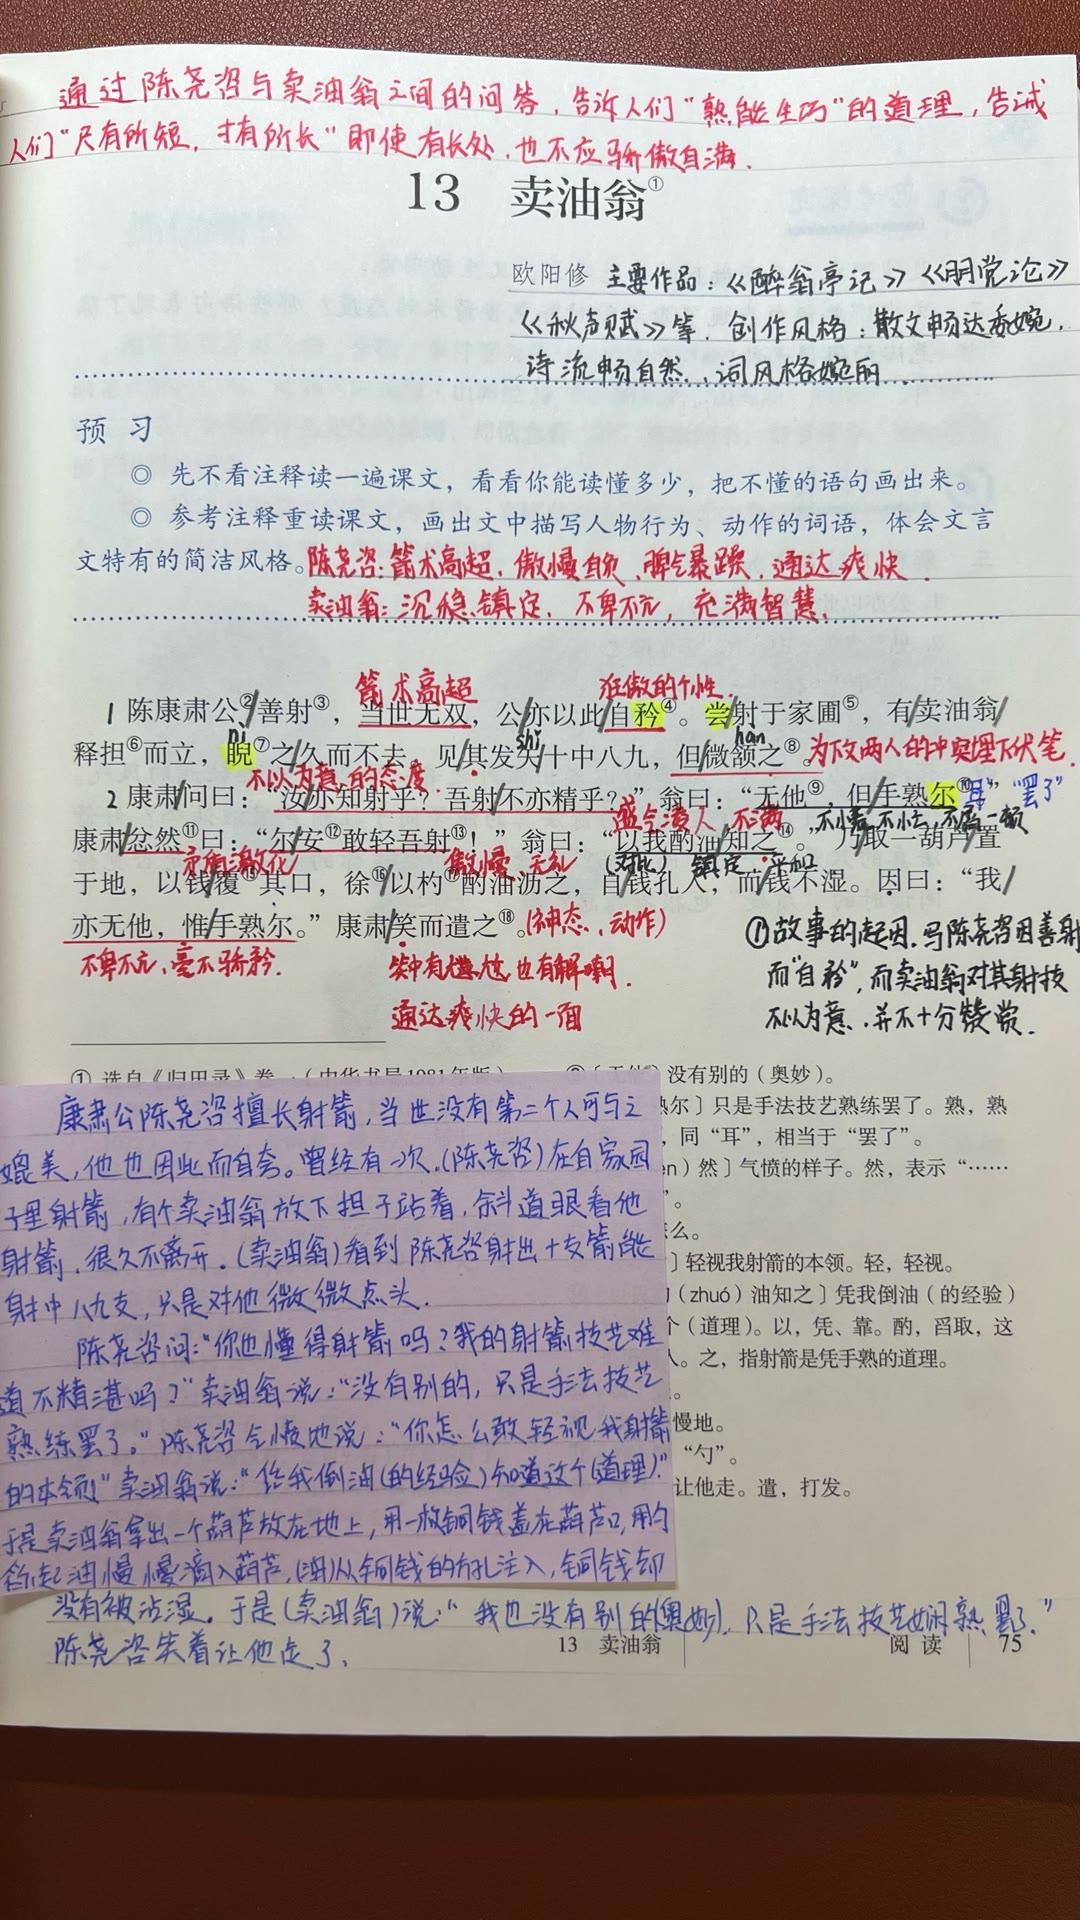 通过陈尧咨与卖油翁之间的问答，告诉人们“熟能生巧”的道理，告诫
人们“尺有所短，寸有所长”即使有长处，也不应骄傲自满.
13 卖油翁①
欧阳修 主要作品：《醉翁亭记》《朋党论》
《秋声赋》等. 创作风格：散文畅达委婉，
诗流畅自然，词风格婉丽
预 习
◎ 先不看注释读一遍课文，看看你能读懂多少，把不懂的语句画出来。
◎ 参考注释重读课文，画出文中描写人物行为、动作的词语，体会文言
文特有的简洁风格。陈尧咨：箭术高超，傲慢自负，脾气暴躁，通达爽快.
卖油翁：沉稳镇定，不卑不亢，充满智慧.
箭术高超 狂傲的个性.
1 陈康肃公②善射③，当世无双，公亦以此自矜④。尝射于家圃⑤，有卖油翁
nì shǐ hàn
释担⑥而立，睨⑦之久而不去。见其发矢十中八九，但微颔之⑧。为下文两人的冲突埋下伏笔.
不以为意的态度
2 康肃问曰：“汝亦知射乎？吾射不亦精乎？”翁曰：“无他⑨，但手熟尔⑩。”“耳”“罢了”
盛气凌人 不满 不慌不忙，不屑一顾
康肃忿然⑪曰：“尔安⑫敢轻吾射⑬！”翁曰：“以我酌油知之⑭。”乃取一葫芦置
矛盾激化 傲慢、无礼 (对比) 镇定、平和
于地，以钱覆⑮其口，徐⑯以杓⑰酌油沥之，自钱孔入，而钱不湿。因曰：“我
亦无他，惟手熟尔。”康肃笑而遣之⑱。(神态、动作)
不卑不亢，毫不骄矜.
笑中有尴尬也有解嘲.
通达爽快的一面
①故事的起因，写陈尧咨因善射
而“自矜”，而卖油翁对其射技
不以为意，并不十分赞赏.
① 选自《归田录》卷一（中华书局1981年版）
没有别的（奥妙）。
熟尔〕只是手法技艺熟练罢了。熟，熟
，同“耳”，相当于“罢了”。
然〕气愤的样子。然，表示“……
”。
怎么。
〕轻视我射箭的本领。轻，轻视。
（zhuó）油知之〕凭我倒油（的经验）
个（道理）。以，凭、靠。酌，舀取，这
。之，指射箭是凭手熟的道理。
慢地。
“勺”。
让他走。遣，打发。
康肃公陈尧咨擅长射箭，当世没有第二个人可与之
媲美，他也因此而自夸。曾经有一次，(陈尧咨)在自家园
子里射箭，有个卖油翁放下担子站着，斜着眼看他
射箭，很久不离开。(卖油翁)看到陈尧咨射出十支箭能
射中八九支，只是对他微微点头.
陈尧咨问：“你也懂得射箭吗？我的射箭技艺难
道不精湛吗？”卖油翁说：“没有别的，只是手法技艺
熟练罢了。”陈尧咨气愤地说：“你怎么敢轻视我射箭
的本领”卖油翁说：“凭我倒油(的经验)知道这个(道理)”
于是卖油翁拿出一个葫芦放在地上，用一枚铜钱盖在葫芦口，用勺
舀起油慢慢滴入葫芦，(油)从铜钱的方孔注入，铜钱却
没有被沾湿。于是(卖油翁)说：“我也没有别的(奥妙)，只是手法技艺娴熟罢了.”
陈尧咨笑着让他走了、
13 卖油翁 阅 读 75